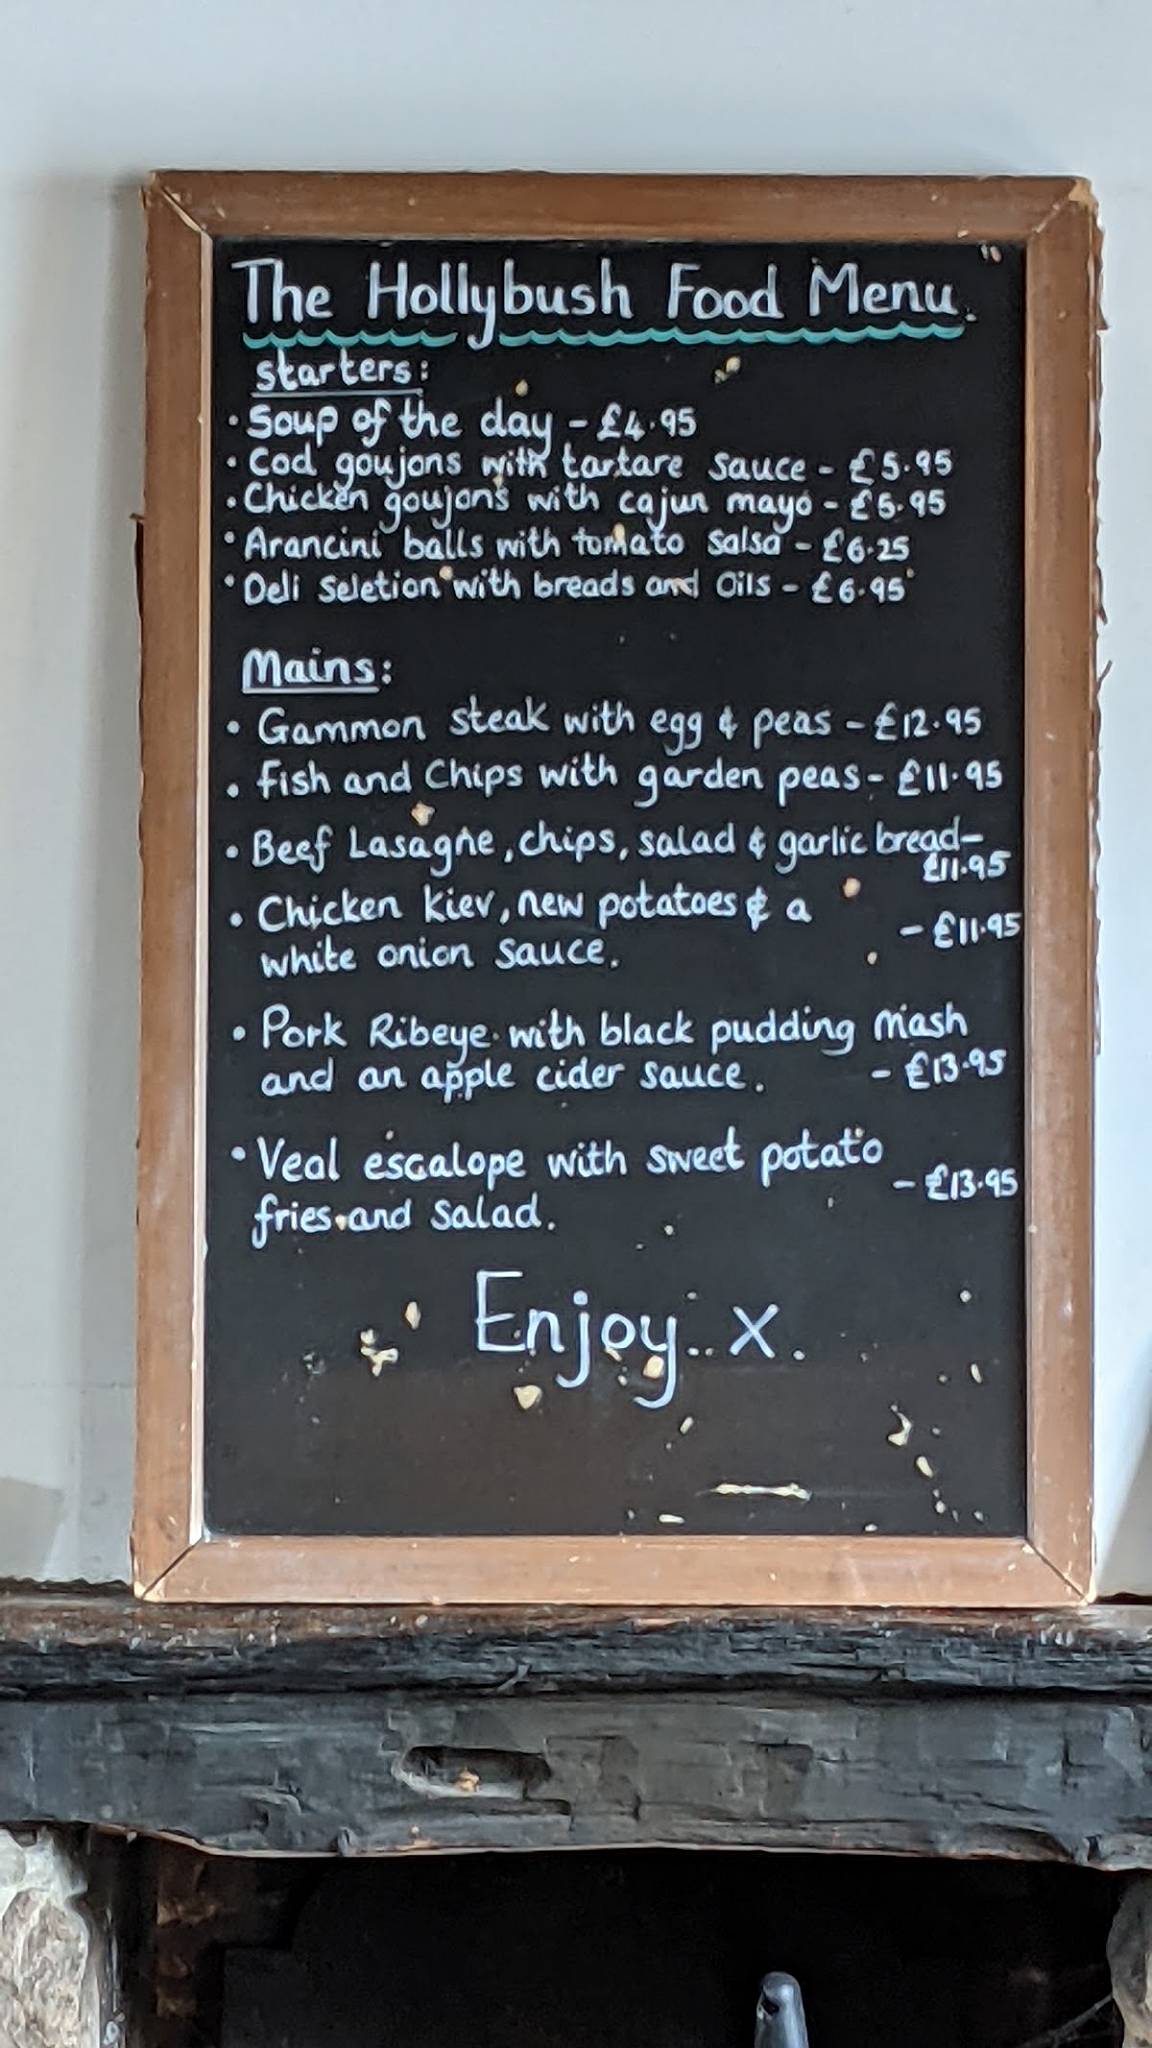 The Hollybush Food Menu.
starters:
• Soup of the day - £4.95
• Cod goujons with tartare sauce - £5.95
• Chicken goujons with cajun mayo - £5.95
• Arancini balls with tomato salsa - £6.25
• Deli Seletion with breads and Oils - £6.95
Mains:
• Gammon steak with egg & peas - £12.95
• Fish and Chips with garden peas - £11.95
• Beef Lasagne, chips, salad & garlic bread-
£11.95
• Chicken kiev, new potatoes & a
white onion sauce. - £11.95
• Pork Ribeye with black pudding mash
and an apple cider sauce. - £13.95
• Veal escalope with sweet potato
fries and salad. - £13.95
Enjoy x